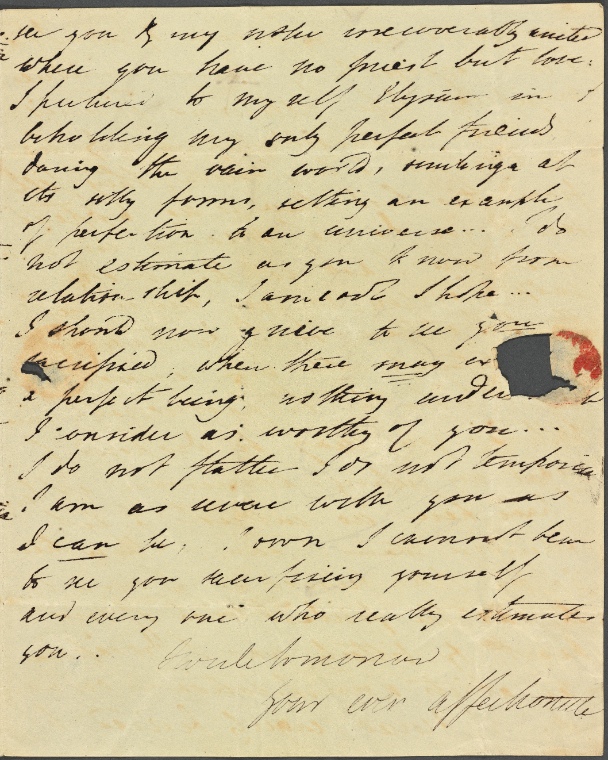 see you & my sister irrecoverably united
where you have no priest but love.
I picture to myself Elysium in
beholding my only perfect friend
daring the vain world, smiling at
its silly forms, setting an example
of perfection to an universe... I do
not estimate as you know from
relationship, I am cool I hope...
I should now grieve to see you
sacrificed, when there may
a perfect being, nothing under
I consider as worthy of you...
I do not flatter I do not temporise
I am as severe with you as
I can be, I own I cannot bear
to see you sacrificing yourself
and every one who really estimates
you.. I write tomorrow
your ever affectionate